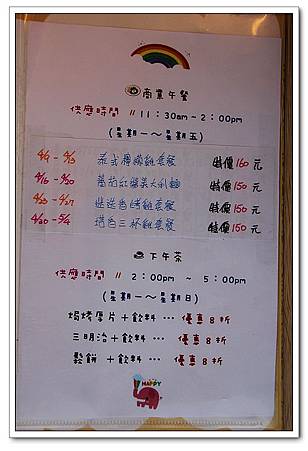 商業午餐
供應時間 // 11:30am-2:00pm
(星期一~星期五)
4/9 - 4/13 泰式檸檬雞套餐 特價160元
4/16 - 4/20 蕃茄紅醬義大利麵 特價150元
4/23 - 4/27 迷迭香烤雞套餐 特價150元
4/30 - 5/4 塔香三杯雞套餐 特價150元
下午茶
供應時間 // 2:00pm ~ 5:00pm
(星期一~星期日)
焗烤厚片+飲料… 優惠8折
三明治+飲料… 優惠8折
鬆餅 +飲料… 優惠8折
HAPPY